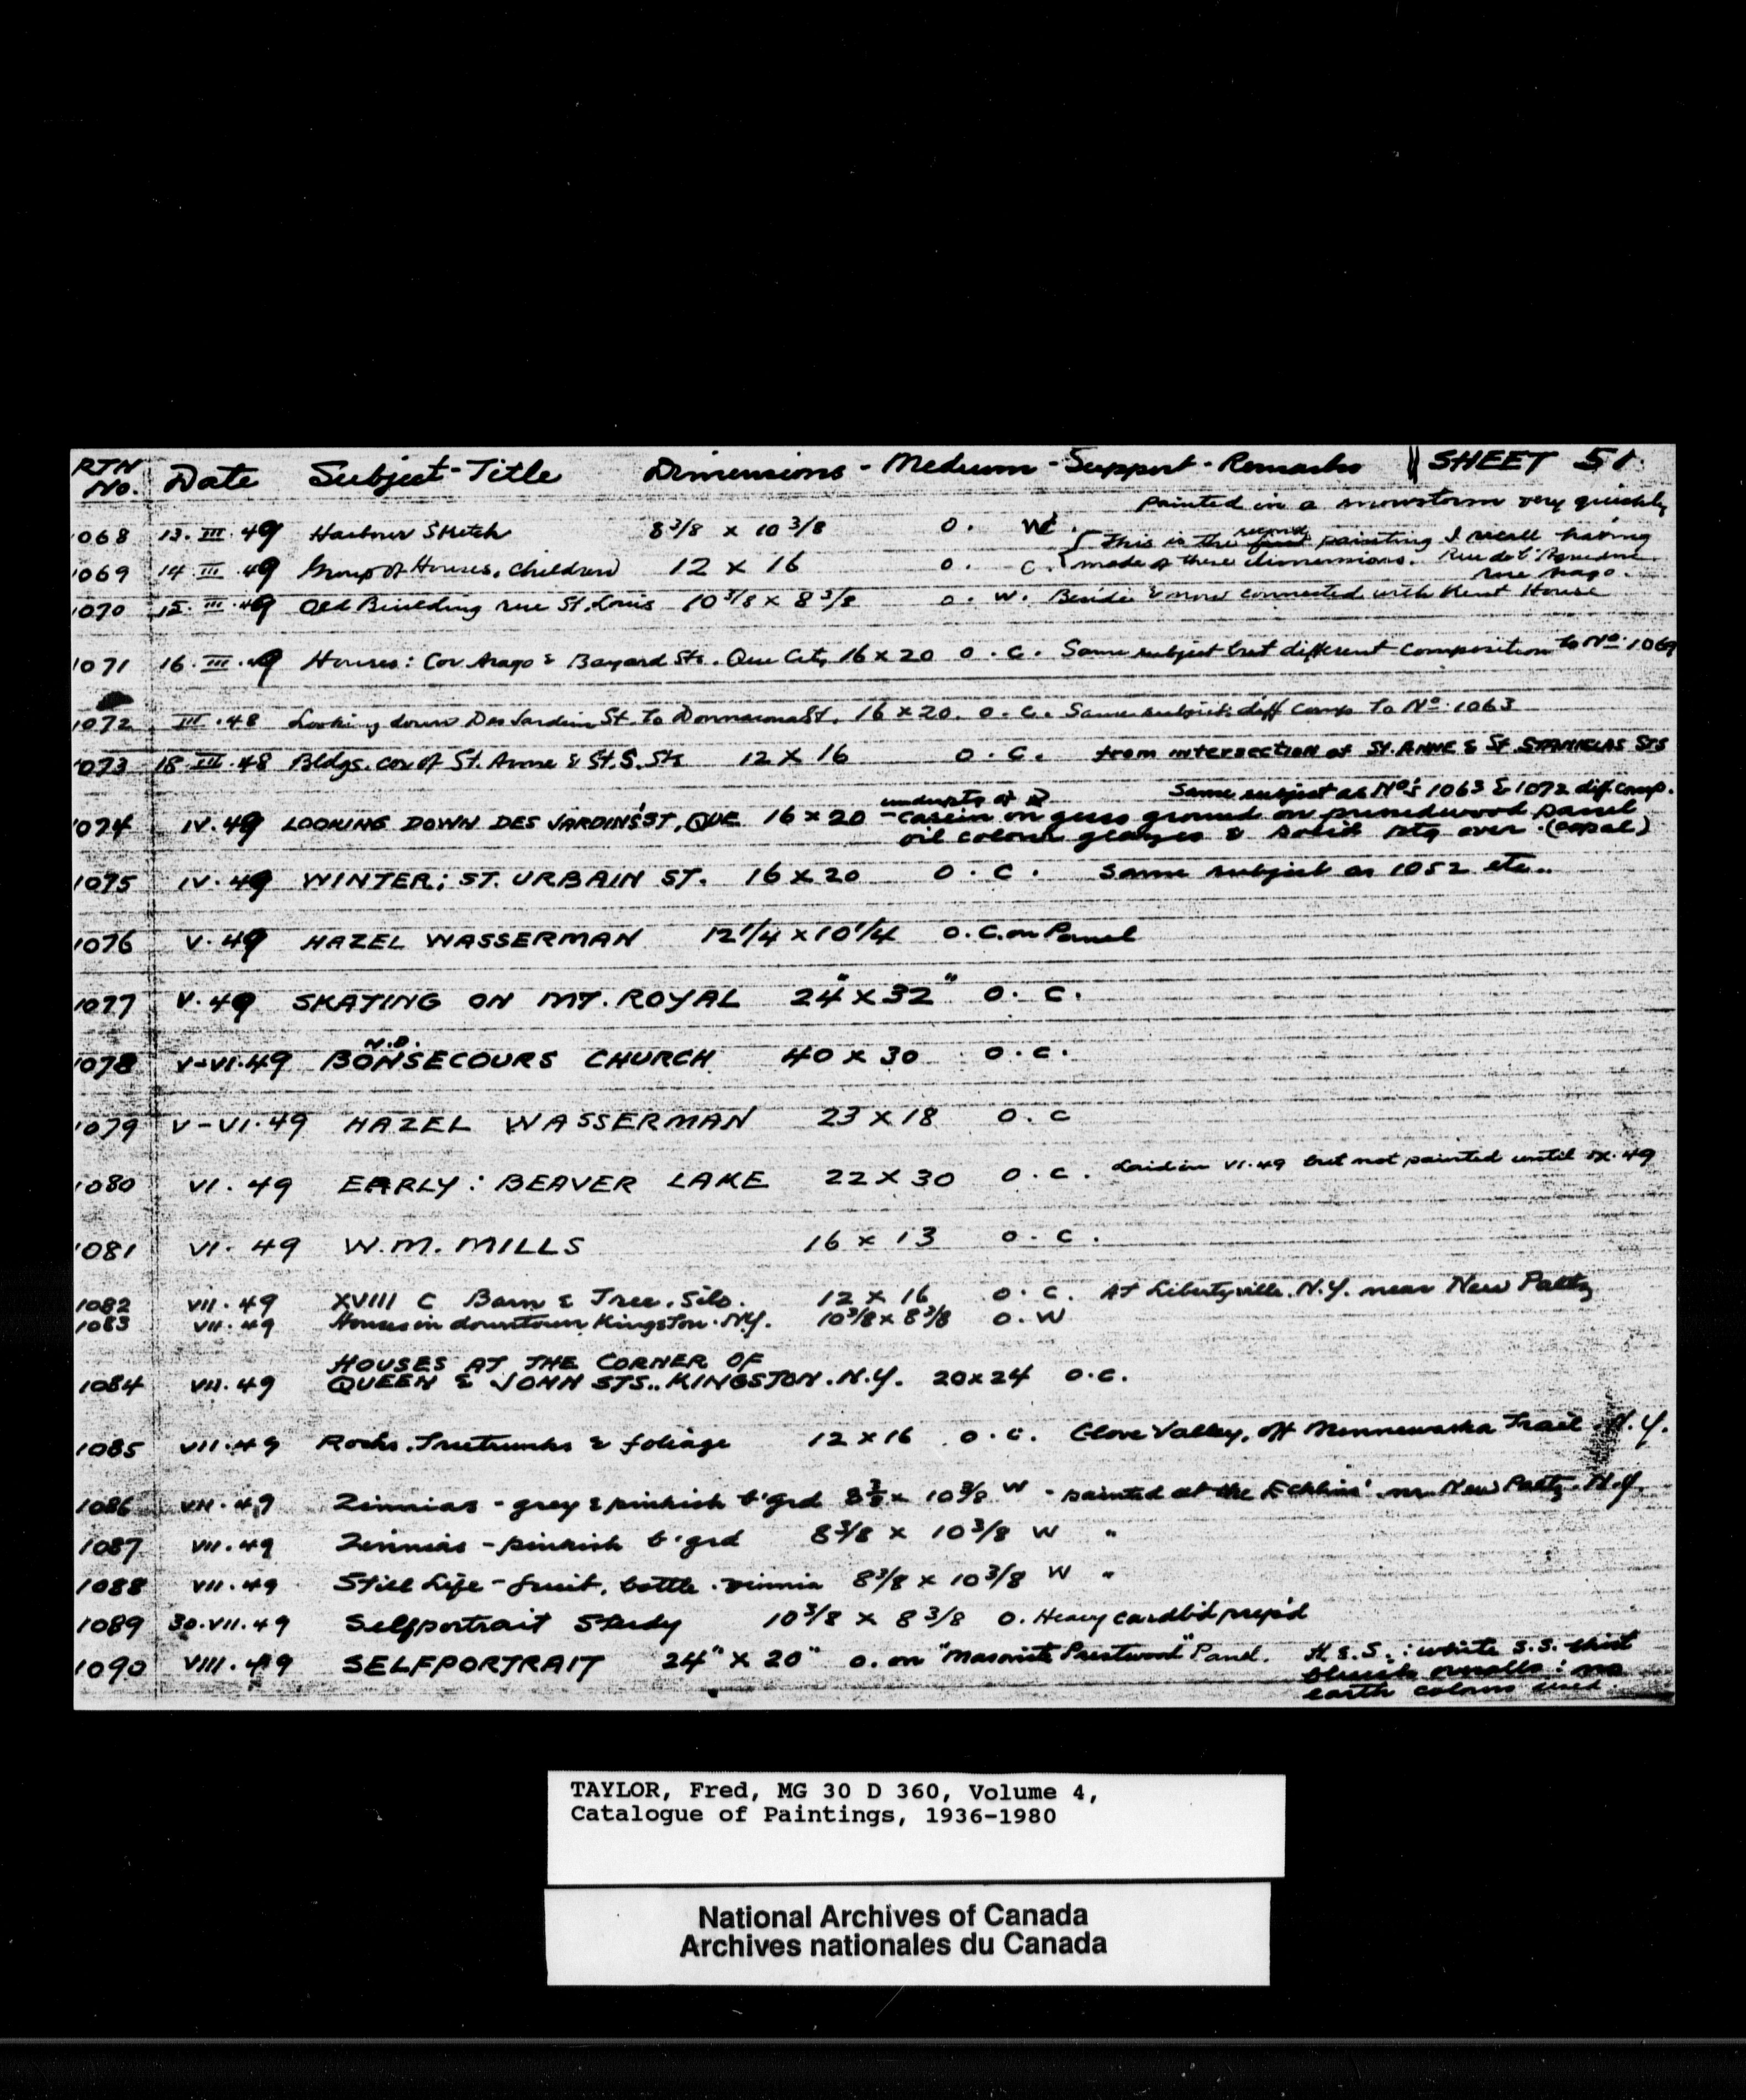 RTN No. Date Subject-Title Dimensions - Medium - Support - Remarks || SHEET 51
painted in a snowstorm very quickly
1068 13.III.49 Harbour Sketch 8 3/8 x 10 3/8 O. W.
This is the second painting I recall having
1069 14.III.49 Group of Houses, Children 12 x 16 O. C. made of these dimensions. Rue de l'
rue Arago.
1070 15.III.49 Old Building rue St. Louis 10 3/8 x 8 3/8 O. W. Beside & now connected with Kent House
1071 16.III.49 Houses: Cor Arago & Bayard Sts. Que City 16 x 20 O. C. Same subject but different composition to No 1069
1072 III.48 Looking down Des Jardins St. To Donnacona St. 16 x 20. O. C. Same subject diff comp To No. 1063
1073 18.III.48 Bldgs. cor of St. Anne & St. S. Sts 12 x 16 O. C. from intersection of ST. ANNE & ST STANISLAS STS
Same subject as No's 1063 & 1072 dif. comp.
underptg of
1074 IV.49 LOOKING DOWN DES JARDINS ST, QUE 16 x 20 - casein on gesso ground on panel
oil colour glazes & solid ptg over. (copal)
1075 IV.49 WINTER: ST. URBAIN ST. 16 x 20 O. C. Same subject as 1052 etc..
1076 V.49 HAZEL WASSERMAN 12 1/4 x 10 1/4 O. C. on Panel
1077 V.49 SKATING ON MT. ROYAL 24" x 32" O. C.
N.D.
1078 V-VI.49 BONSECOURS CHURCH 40 x 30 O. C.
1079 V-VI.49 HAZEL WASSERMAN 23 x 18 O. C
1080 VI.49 EARLY: BEAVER LAKE 22 x 30 O. C. Laid in VI.49 but not painted until IX.49
1081 VI.49 W.M. MILLS 16 x 13 O. C.
1082 VII.49 XVIII C Barn & Tree. Silo. 12 x 16 O. C. At Libertyville. N.Y. near New Paltz
1083 VII.49 Houses in downtown Kingston. N.Y. 10 3/8 x 8 3/8 O. W
HOUSES AT THE CORNER OF
1084 VII.49 QUEEN & JOHN STS.. KINGSTON. N.Y. 20 x 24 O.C.
1085 VII.49 Rocks, Treetrunks & foliage 12 x 16 O. C. Clove Valley, off Minnewaska Trail N.Y.
1086 VII.49 Zinnias - grey & pinkish b'grd 8 3/8 x 10 3/8 W - painted at the nr New Paltz. N.Y.
1087 VII.49 Zinnias - pinkish b'grd 8 3/8 x 10 3/8 W "
1088 VII.49 Still Life - fruit, bottle. zinnia 8 3/8 x 10 3/8 W "
1089 30.VII.49 Selfportrait Study 10 3/8 x 8 3/8 O. Heavy cardb'd prep'd
1090 VIII.49 SELFPORTRAIT 24" x 20" O. on "Masonite Prestwood" Panel. H & S.: white S.S. shirt
no
earth colours used.
TAYLOR, Fred, MG 30 D 360, Volume 4,
Catalogue of Paintings, 1936-1980
National Archives of Canada
Archives nationales du Canada